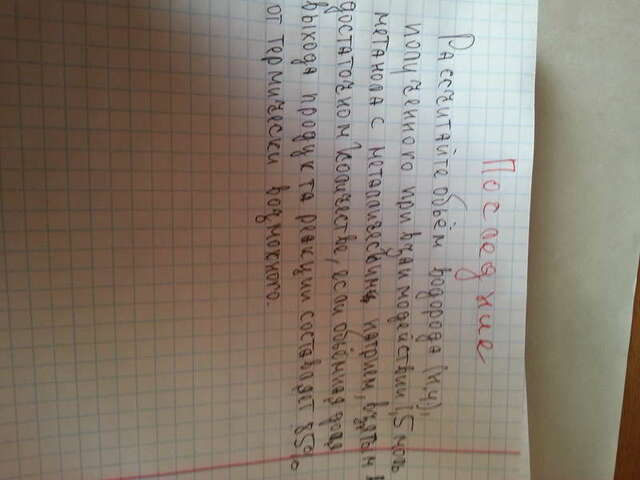 Последние
Рассчитайте объём водорода (н.у),
полученного при взаимодействии 1,5 моль
метанола с металлическим натрием, взятым в
достаточном количестве, если объёмная доля
выхода продукта реакции составляет 85%
от термически возможного.